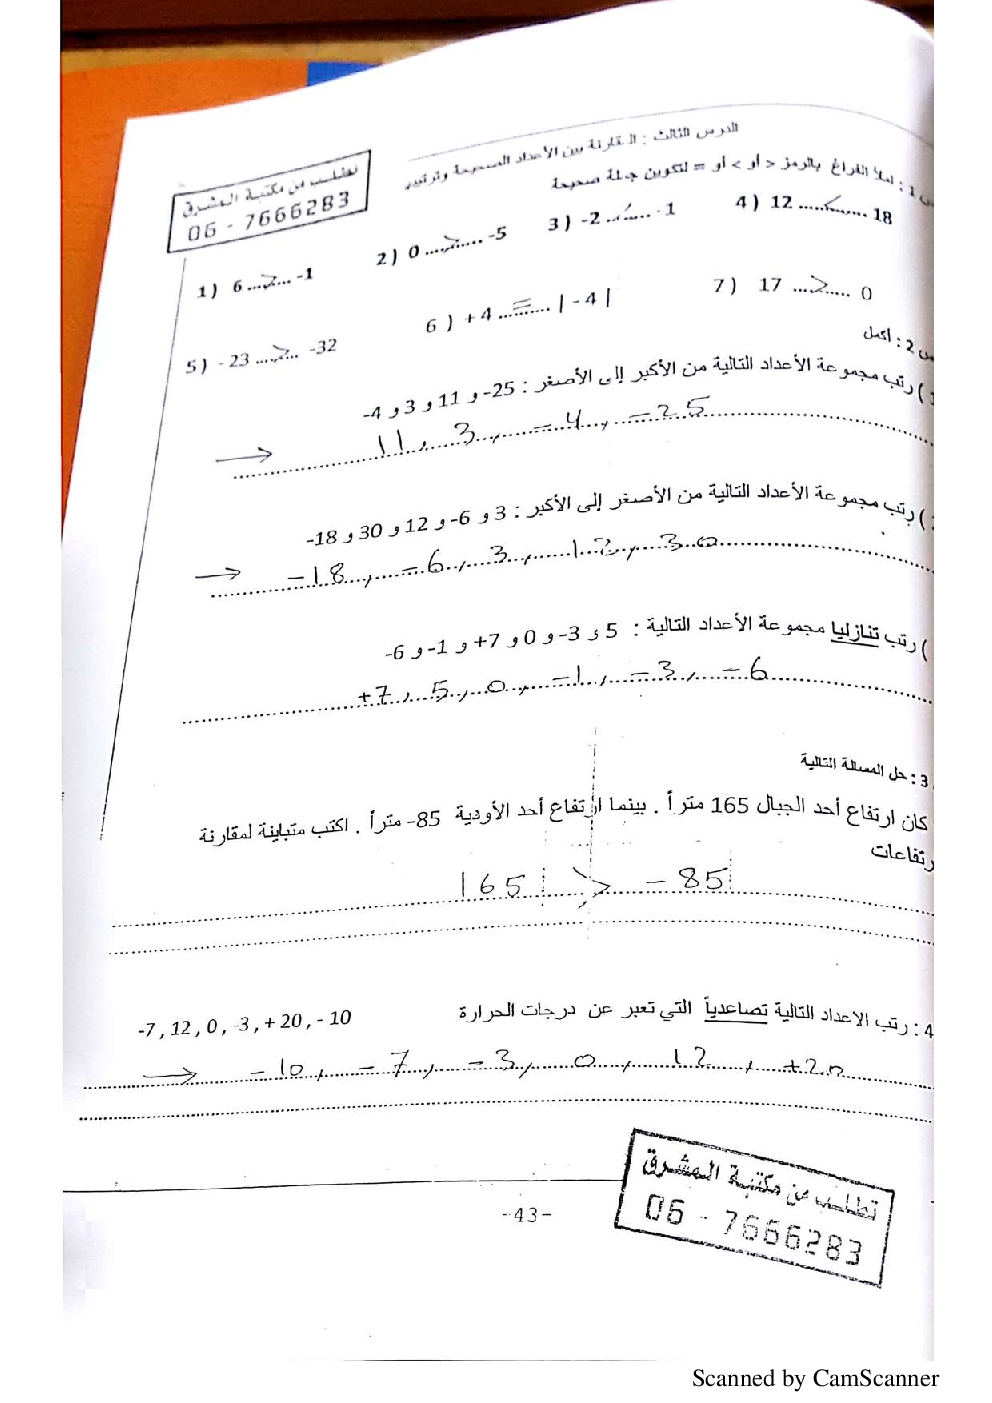 الدرس الثالث : المقارنة بين الأعداد الصحيحة وترتيبها
تطلب من مكتبة المشرق
06 - 7666283
1 : املأ الفراغ بالرمز < أو > أو = لتكوين جملة صحيحة
1) 6 ...>... -1
2) 0 ...>... -5
3) -2 ...<... -1
4) 12 ...<... 18
5) - 23 ...>... -32
6) +4 ...=... | - 4 |
7) 17 ...>... 0
س 2 : أكمل
) رتب مجموعة الأعداد التالية من الأكبر إلى الأصغر : 25- و 11 و 3 و 4-
→ 11, 3, -4, -25
) رتب مجموعة الأعداد التالية من الأصغر إلى الأكبر : 3 و 6- و 12 و 30 و 18-
→ -18, -6, 3, 12, 30
) رتب تنازليا مجموعة الأعداد التالية : 5 و 3- و 0 و 7+ و 1- و 6-
+7, 5, 0, -1, -3, -6
3 : حل المسالة التالية
كان ارتفاع أحد الجبال 165 متراً . بينما ارتفاع أحد الأودية 85- متراً . اكتب متباينة لمقارنة
رتفاعات
165 > -85
4 : رتب الاعداد التالية تصاعدياً التي تعبر عن درجات الحرارة -7 , 12 , 0 , -3 , + 20 , - 10
→ -10, -7, -3, 0, 12, +20
تطلب من مكتبة المشرق
06 - 7666283
-43-
Scanned by CamScanner